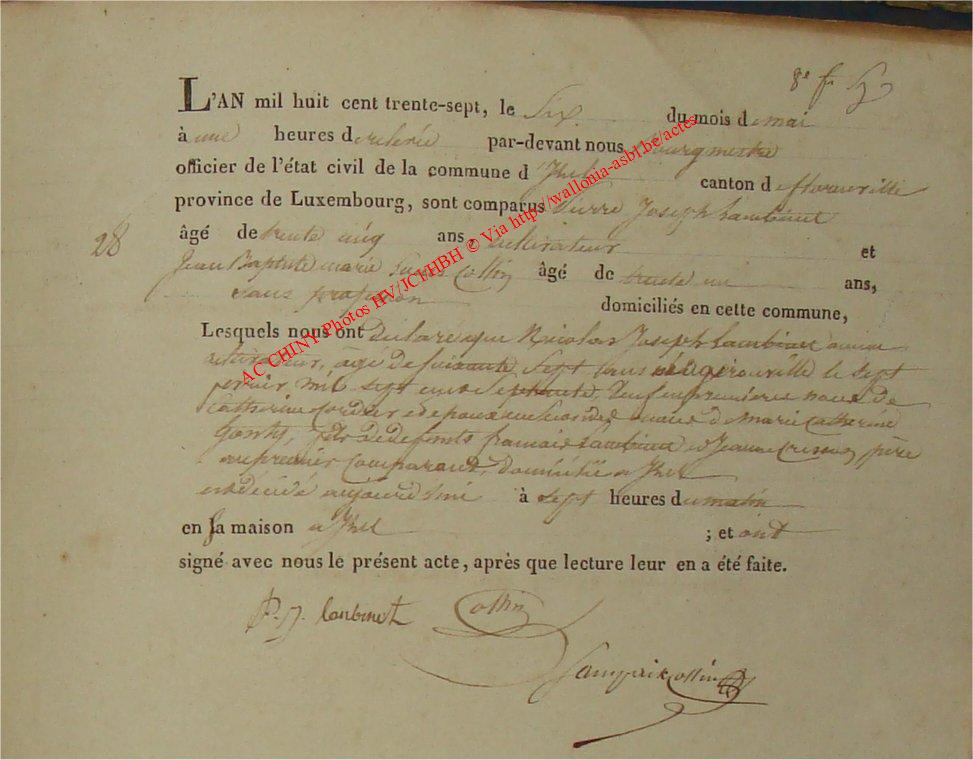 8e f
L'AN mil huit cent trente-sept, le Six du mois de mai
à une heures de relevée par-devant nous Bourgmestre
officier de l'état civil de la commune d'Izel canton de florenville
province de Luxembourg, sont comparus Pierre Joseph Lambinet
28
âgé de trente cinq ans, cultivateur et
Jean Baptiste marie Collin âgé de trente un ans,
sans profession domiciliés en cette commune,
Lesquels nous ont declaré que Nicolas Joseph Lambinet
cultivateur, agé de soixante Sept ans né a pirouville le sept
mil sept cent Septante, Veuf en premiere noce de
Catherine Cordier et epoux en Secondes noces de Marie Catherine
fils de defunts francois Lambinet et Jeanne père
au premier Comparant, Domicilié a Izel
est décédé aujourd'hui à sept heures du matin
en sa maison a Izel ; et ont
signé avec nous le présent acte, après que lecture leur en a été faite.
P. J. Lambinet Collin
Collin
AC CHINY Photos HV/JCVHBH © Via http://wallonia-asbl.be/actes